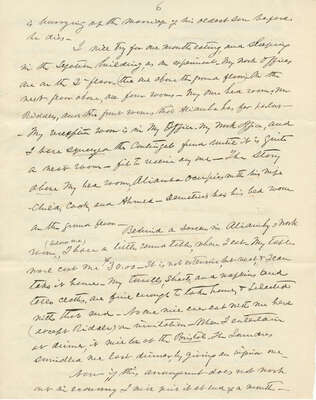 6
is hurrying up the marriage of his oldest son before
he dies —
I will try for one month eating and sleeping
in the Legation building as an experiment. My work offices
are on the 2d floor, the one above the ground floor. On the
next floor above, are four rooms — My one bed room, Mr
Riddles, and the front room, that has for
— My reception room is in My office. My Work office, and
I have squeezed the Contingent fund until it is quite
a neat room — fit to receive any one — The Story
above My bed room occupies with his wife
Child, Cook, and Ahmed — Demetrius has his bed room
on the ground floor —
Behind a screen in work
room, (below me) I have a little round table, where I eat. My table
ware cost me $30.00 — It is not extensive but neat & I can
take it home. My towells, sheets, and napkins and
table cloths, are fine enough to take home, & I selected
with that end — No one will ever eat with me here
(except Riddle) on invitation — When I entertain
at dinner, it will be at the Bristol. The
swindled me last dinner, by giving an inferior one
Now if this arrangement does not work
out in economy I will give it at end of a month —